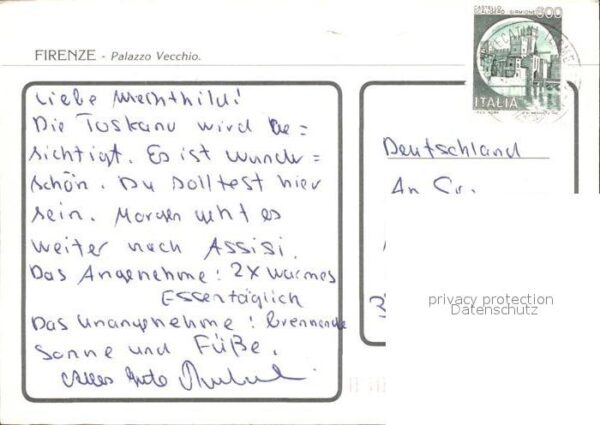 FIRENZE - Palazzo Vecchio.
CASTELLO
SCALIGERO SIRMIONE
600
ITALIA
Liebe Mechthild!
Die Toskana wird be=
sichtigt. Es ist wunder=
schön. Du solltest hier
sein. Morgen geht es
weiter nach Assisi.
Das Angenehme: 2x warmes
Essen täglich
Das Unangenehme: Brennende
Sonne und Füße.
Alles Gute
Deutschland
An
privacy protection
Datenschutz